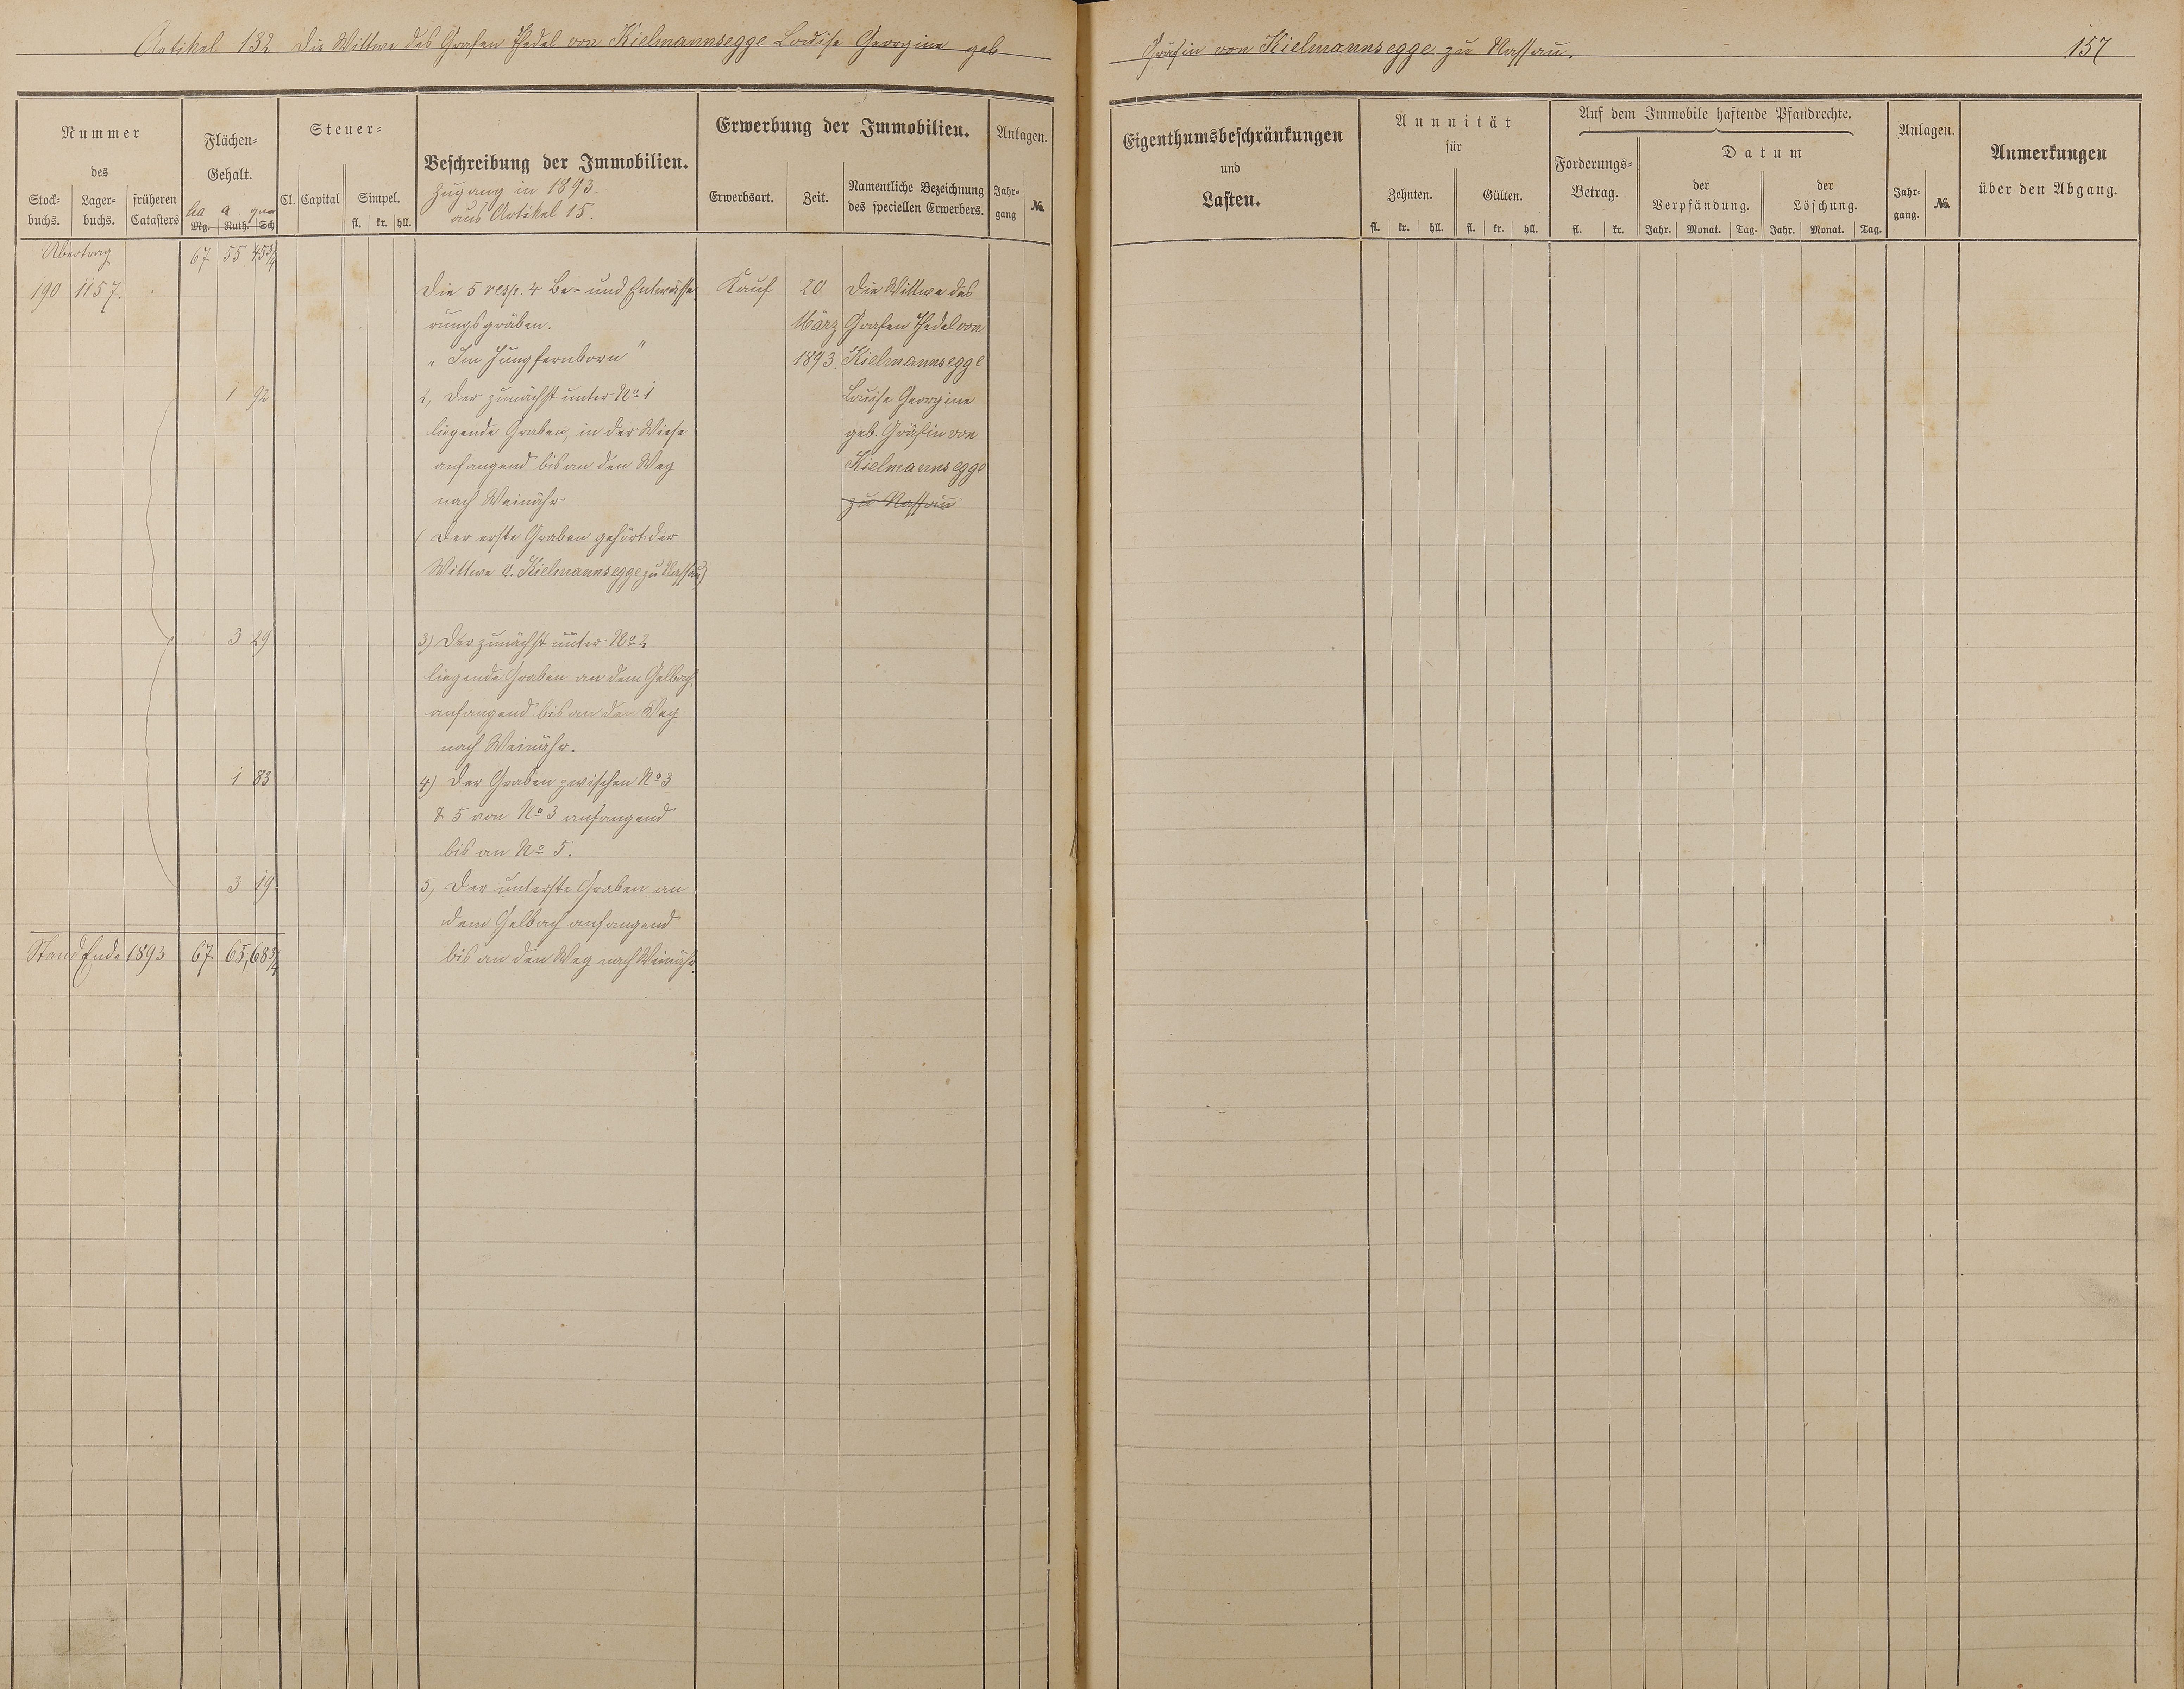 Artikel 132 Die Wittwe des Grafen Thedel von Kielmannsegge Louise Georgine geb
Gräfin von Kielmannsegge zu Nassau.
157
Nummer
des
Stock-
buchs.
Lager-
buchs.
früheren
Catasters
Flächen-
Gehalt.
ha a qm
Mg. Ruth. Sch
Steuer-
Cl. Capital Simpel.
fl. kr. hll.
Beschreibung der Immobilien.
Zugang in 1893.
aus Artikel 15.
Erwerbung der Immobilien.
Erwerbsart. Zeit.
Namentliche Bezeichnung
des speciellen Erwerbers.
Anlagen.
Jahr-
gang
No.
Eigenthumsbeschränkungen
und
Lasten.
Annuität
für
Zehnten. Gülten.
fl. kr. hll. fl. kr. hll.
Auf dem Immobile haftende Pfandrechte.
Forderungs-
Betrag.
fl. kr.
Datum
der
Verpfändung.
der
Löschung.
Jahr. Monat. Tag. Jahr. Monat. Tag.
Anlagen.
Jahr-
gang.
No.
Anmerkungen
über den Abgang.
Übertrag 67 55 45 3/4
190 1157. Die 5 resp. 4 Be- und Entwässe Kauf 20. Die Wittwe des
rungsgräben. März Grafen Thedel von
„ Im Jungfernborn " 1893. Kielmannsegge
1 92 2, Der zunächst unter No 1 Louise Georgine
liegende Graben, in der Wiese geb. Gräfin von
anfangend bis an den Weg Kielmannsegge
nach Weinähr zu Nassau
( Der erste Graben gehört der
Wittwe v. Kielmannsegge zu Nassau)
3 29 3) Der zunächst unter No 2
liegende Graben an dem Gelbach
anfangend bis an den Weg
nach Weinähr.
1 83 4) Der Graben zwischen No 3
& 5 von No 3 anfangend
bis an No 5.
3 19 5, Der unterste Graben an
dem Gelbach anfangend
Stand Ende 1893 67 65,68 3/4 bis an den Weg nach Weinähr.